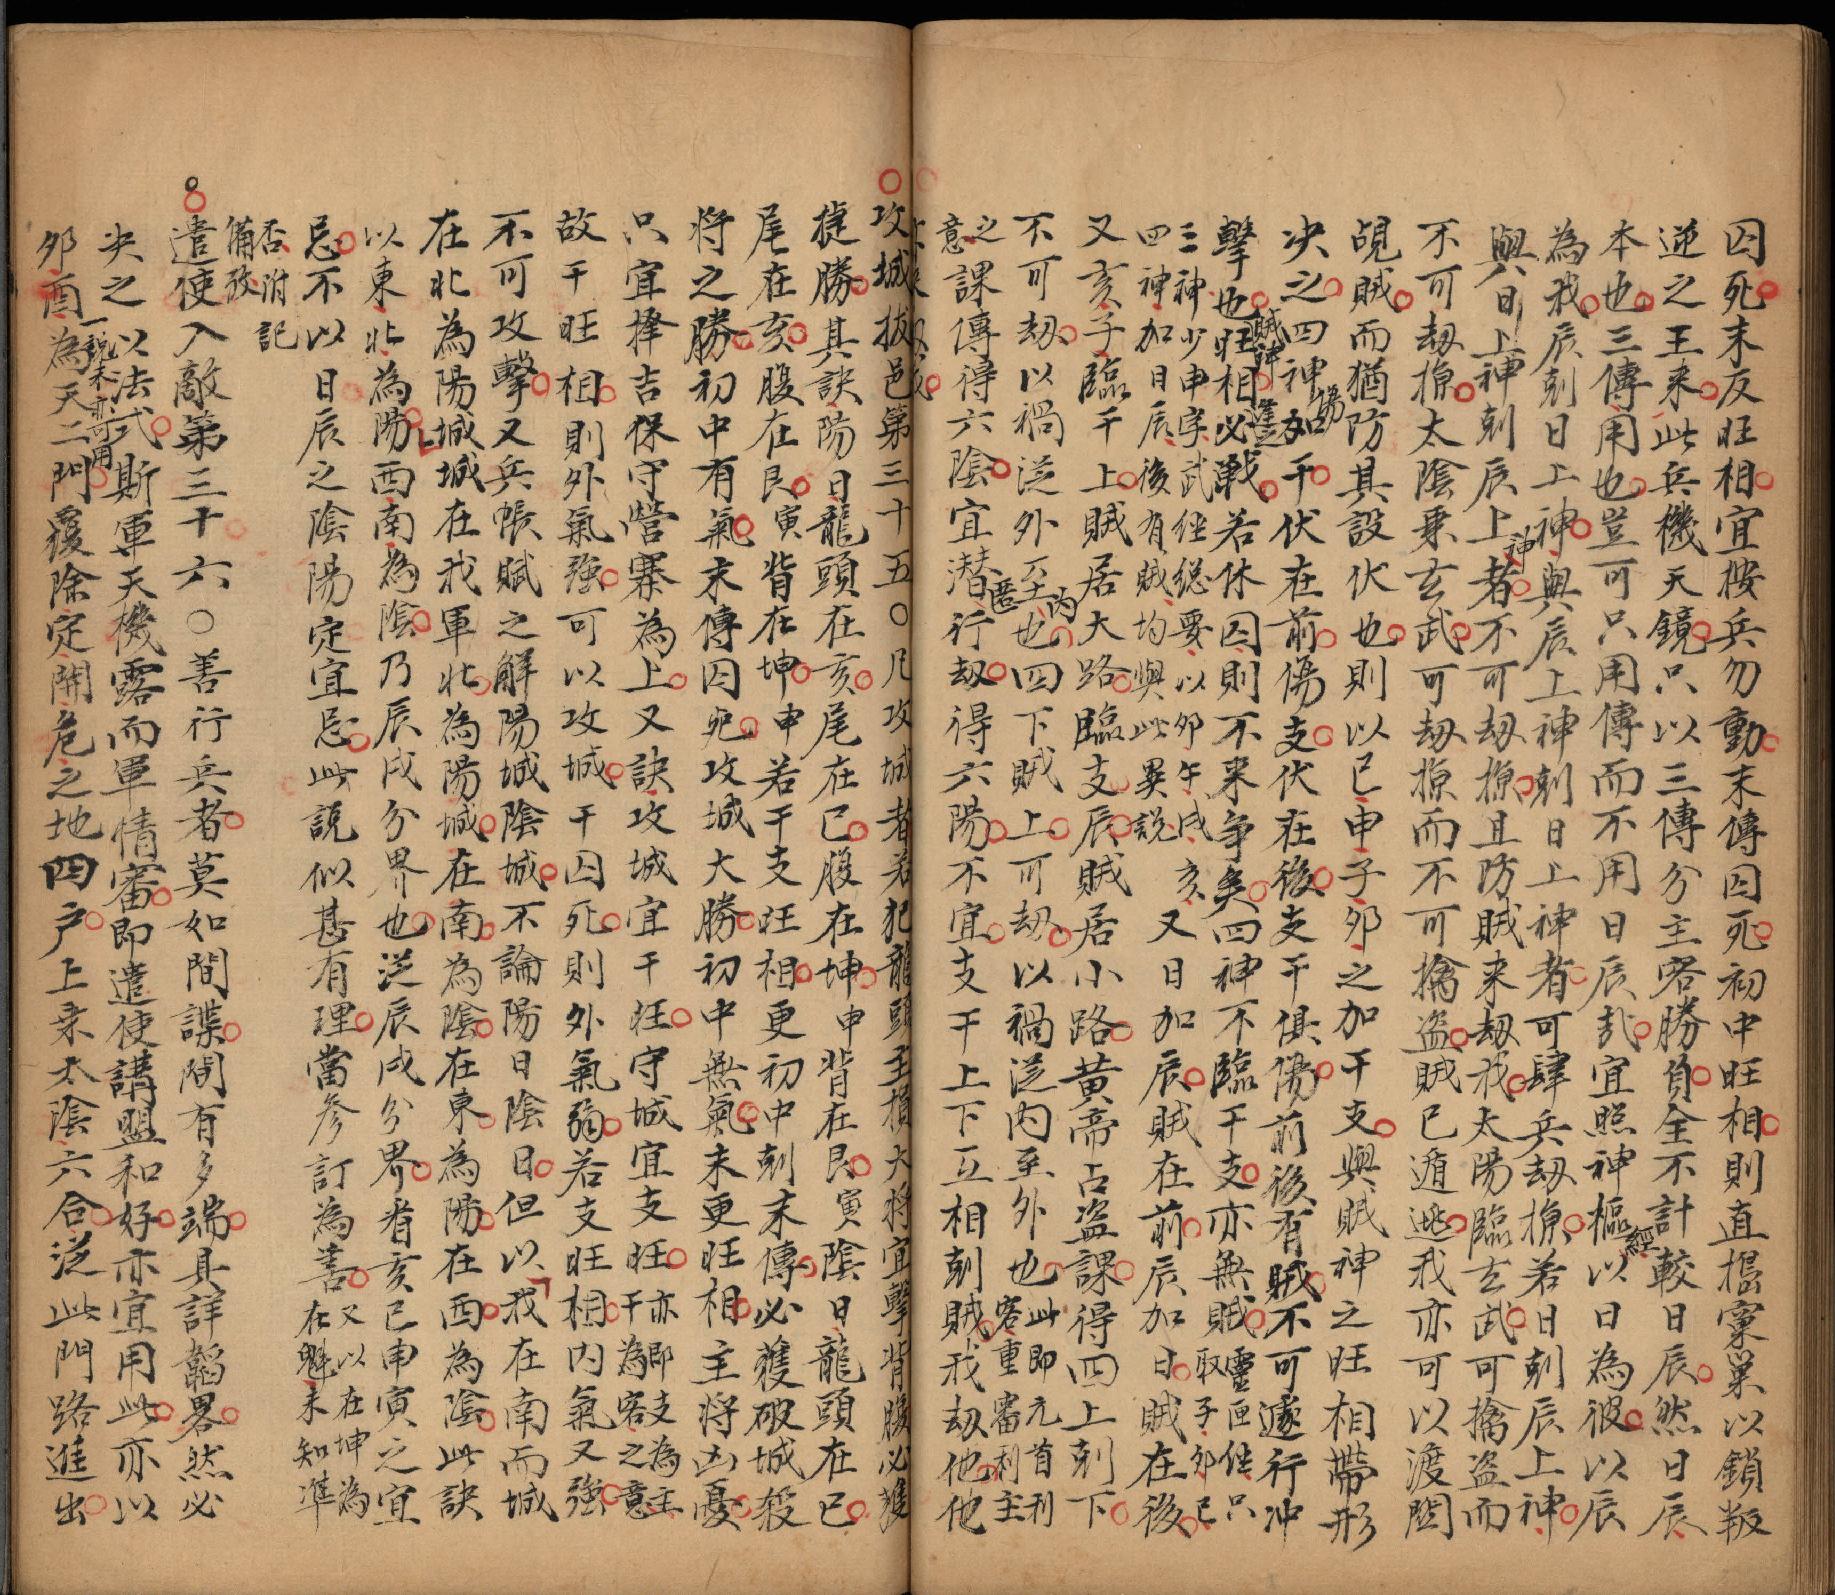 囚死末反旺相宜按兵勿動末傳囚死初中旺相則直搗窠巢以鎖叛
逆之王来此兵機天鏡只以三傳分主客勝負全不計較日辰然日辰
本也三傳用也豈可只用傳而不用日辰㢤宜照神樞經以日為彼以辰
為我辰剋日上神與辰上神剋日上神者可肆兵刼掠若日剋辰上神
與日上神剋辰上神者不可刼掠且防賊来刼我太陽臨玄武可擒盗而
不可刼掠太陰乗玄武可刼掠而不可擒盗賊已遁逃我亦可以渡関
覘賊而猶防其設伏也則以巳申子夘之加干支與賊神之旺相帶形
决之四神加干伏在前傷支伏在後支干俱傷前後有賊不可遽行冲
擊也賊神旺相必戰若休囚則不来争矣四神不臨干支亦無賊靈匣経只取子夘巳
三神少申字武経総要以夘午戌亥四神加日辰後有賊均與此異説又日加辰賊在前辰加日賊在後
又亥子臨干上賊居大路臨支辰賊居小路黄帝占盗課得四上剋下
不可刼以禍從外至内也四下賊上可刼以禍從内至外也此即元首利客重審利主
之意課傳得六陰宜潜匿行刼得六陽不宜支干上下互相剋賊我刼他他
攻城拔邑第三十五○凡攻城者若犯龍頭主損大将宜擊背腹必獲
捷勝其訣陽日龍頭在亥尾在巳腹在坤申背在艮寅陰日龍頭在巳
尾在亥腹在艮寅背在坤申若干支旺相更初中剋末傳必獲破城殺
将之勝初中有氣末傳囚死攻城大勝初中無氣末更旺相主将凶憂
只宜擇吉保守營寨為上又訣攻城宜干旺守城宜支旺亦即支為主干為客之意
故干旺相則外氣強可以攻城干囚死則外氣弱若支旺相内氣又強
不可攻擊又兵帳賦之解陽城陰城不論陽日陰日但以我在南而城
在北為陽城城在我軍北為陽城在南為陰在東為陽在西為陰此訣
以東北為陽西南為陰乃辰戌分界也從辰戌分界者亥巳申寅之宜
忌不以日辰之陰陽定宜忌此説似甚有理當參訂為善又以在坤為在魁未知準
否附記備攷
遣使入敵第三十六○善行兵者莫如間諜間有多端具詳韜畧然必
央之以法式斯軍天機露而軍情審即遣使講盟和好亦宜用此亦以
夘酉為天二門一說未亦可用覆除定開危之地四户上乗太陰六合從此門路進出